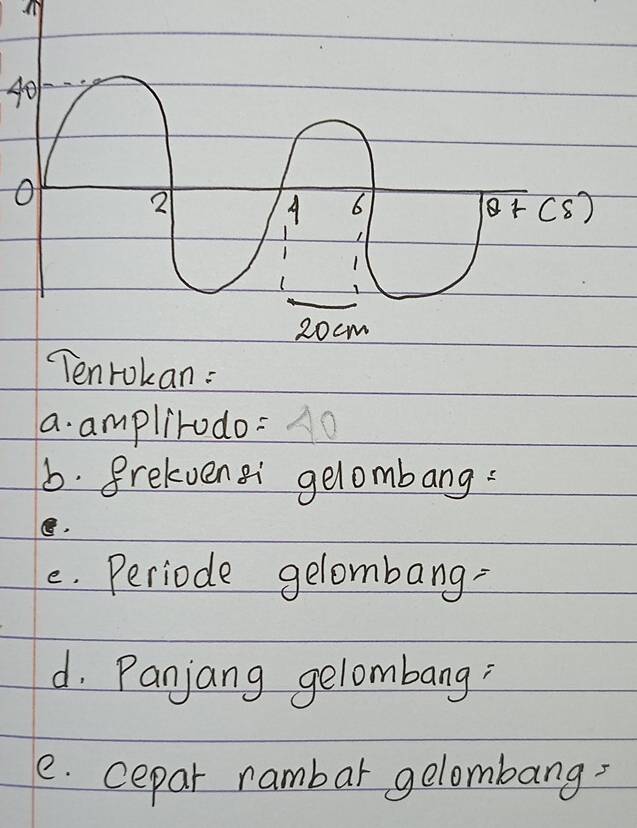 40
0 2 4 6 8 t (s)
20cm
Tentukan:
a. amplitudo = 40
b. frekuensi gelombang =
c.
c. Periode gelombang =
d. Panjang gelombang =
e. cepat rambat gelombang =